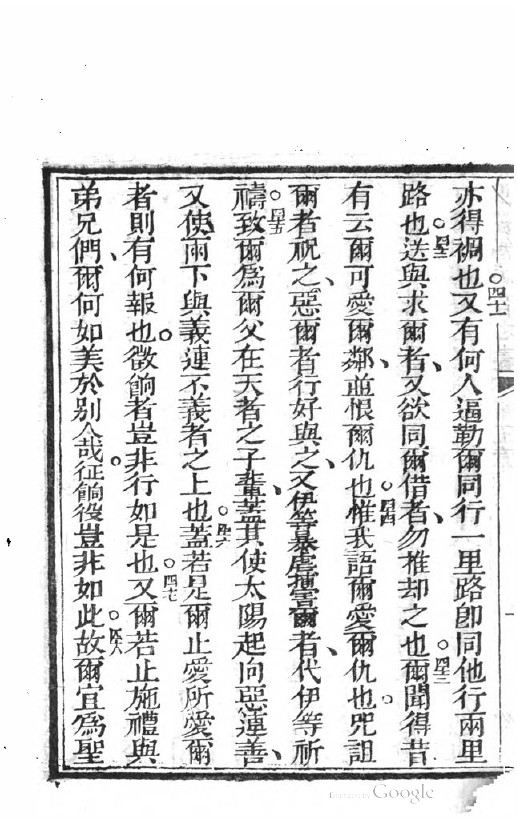 亦得裯也○四十一又有何人逼勒爾同行一里路卽同他行兩里
路也○四十二送與求爾者、又欲同爾借者、勿推却之也○四十三爾聞得昔
有云爾可愛爾鄰、並恨爾仇也○四十四惟我語爾愛爾仇也○咒詛
爾者祝之、惡爾者行好與之、又伊等暴虐擄害爾者、代伊等祈
禱○四十五致爾爲爾父在天者之子輩、蓋其使太陽起向惡連善、
又使雨下與義連不義者之上也○四十六蓋若是爾止愛所愛爾
者則有何報也○徵餉者豈非行如是也○四十七又爾若止施禮與
弟兄們、爾何如美於别人哉○征餉役豈非如此○四十八故爾宜爲聖
Digitized by Google